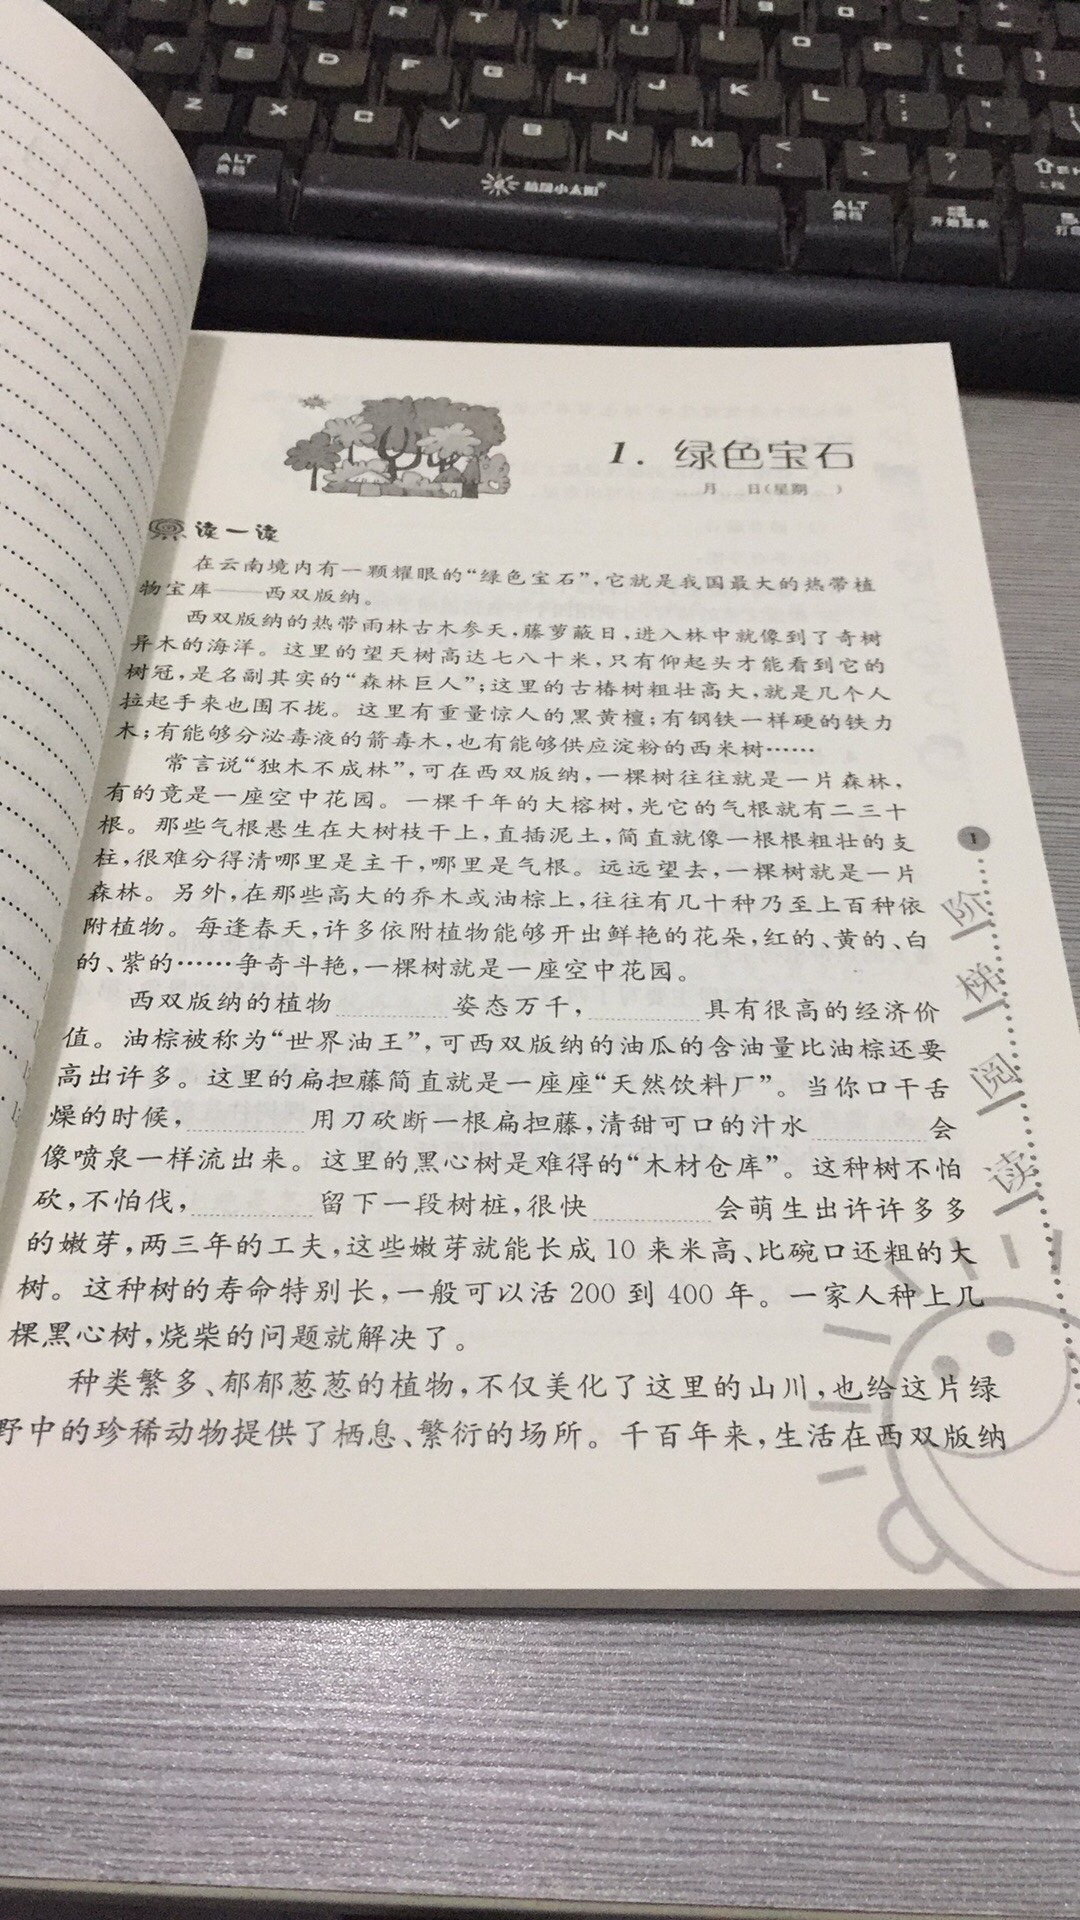 W E R T Y U I O P
A S D F G H J K L
Z X C V B N M
ALT
换档
小太阳
ALT
换档
开始菜单
1. 绿色宝石
月 日(星期 )
读一读
在云南境内有一颗耀眼的“绿色宝石”,它就是我国最大的热带植
物宝库——西双版纳。
西双版纳的热带雨林古木参天,藤萝蔽日,进入林中就像到了奇树
异木的海洋。这里的望天树高达七八十米,只有仰起头才能看到它的
树冠,是名副其实的“森林巨人”;这里的古椿树粗壮高大,就是几个人
拉起手来也围不拢。这里有重量惊人的黑黄檀;有钢铁一样硬的铁力
木;有能够分泌毒液的箭毒木,也有能够供应淀粉的西米树……
常言说“独木不成林”,可在西双版纳,一棵树往往就是一片森林,
有的竟是一座空中花园。一棵千年的大榕树,光它的气根就有二三十
根。那些气根悬生在大树枝干上,直插泥土,简直就像一根根粗壮的支
柱,很难分得清哪里是主干,哪里是气根。远远望去,一棵树就是一片
森林。另外,在那些高大的乔木或油棕上,往往有几十种乃至上百种依
附植物。每逢春天,许多依附植物能够开出鲜艳的花朵,红的、黄的、白
的、紫的……争奇斗艳,一棵树就是一座空中花园。
西双版纳的植物 姿态万千, 具有很高的经济价
值。油棕被称为“世界油王”,可西双版纳的油瓜的含油量比油棕还要
高出许多。这里的扁担藤简直就是一座座“天然饮料厂”。当你口干舌
燥的时候, 用刀砍断一根扁担藤,清甜可口的汁水 会
像喷泉一样流出来。这里的黑心树是难得的“木材仓库”。这种树不怕
砍,不怕伐, 留下一段树桩,很快 会萌生出许许多多
的嫩芽,两三年的工夫,这些嫩芽就能长成 10 来米高、比碗口还粗的大
树。这种树的寿命特别长,一般可以活 200 到 400 年。一家人种上几
棵黑心树,烧柴的问题就解决了。
种类繁多、郁郁葱葱的植物,不仅美化了这里的山川,也给这片绿
野中的珍稀动物提供了栖息、繁衍的场所。千百年来,生活在西双版纳
1
阶梯阅读